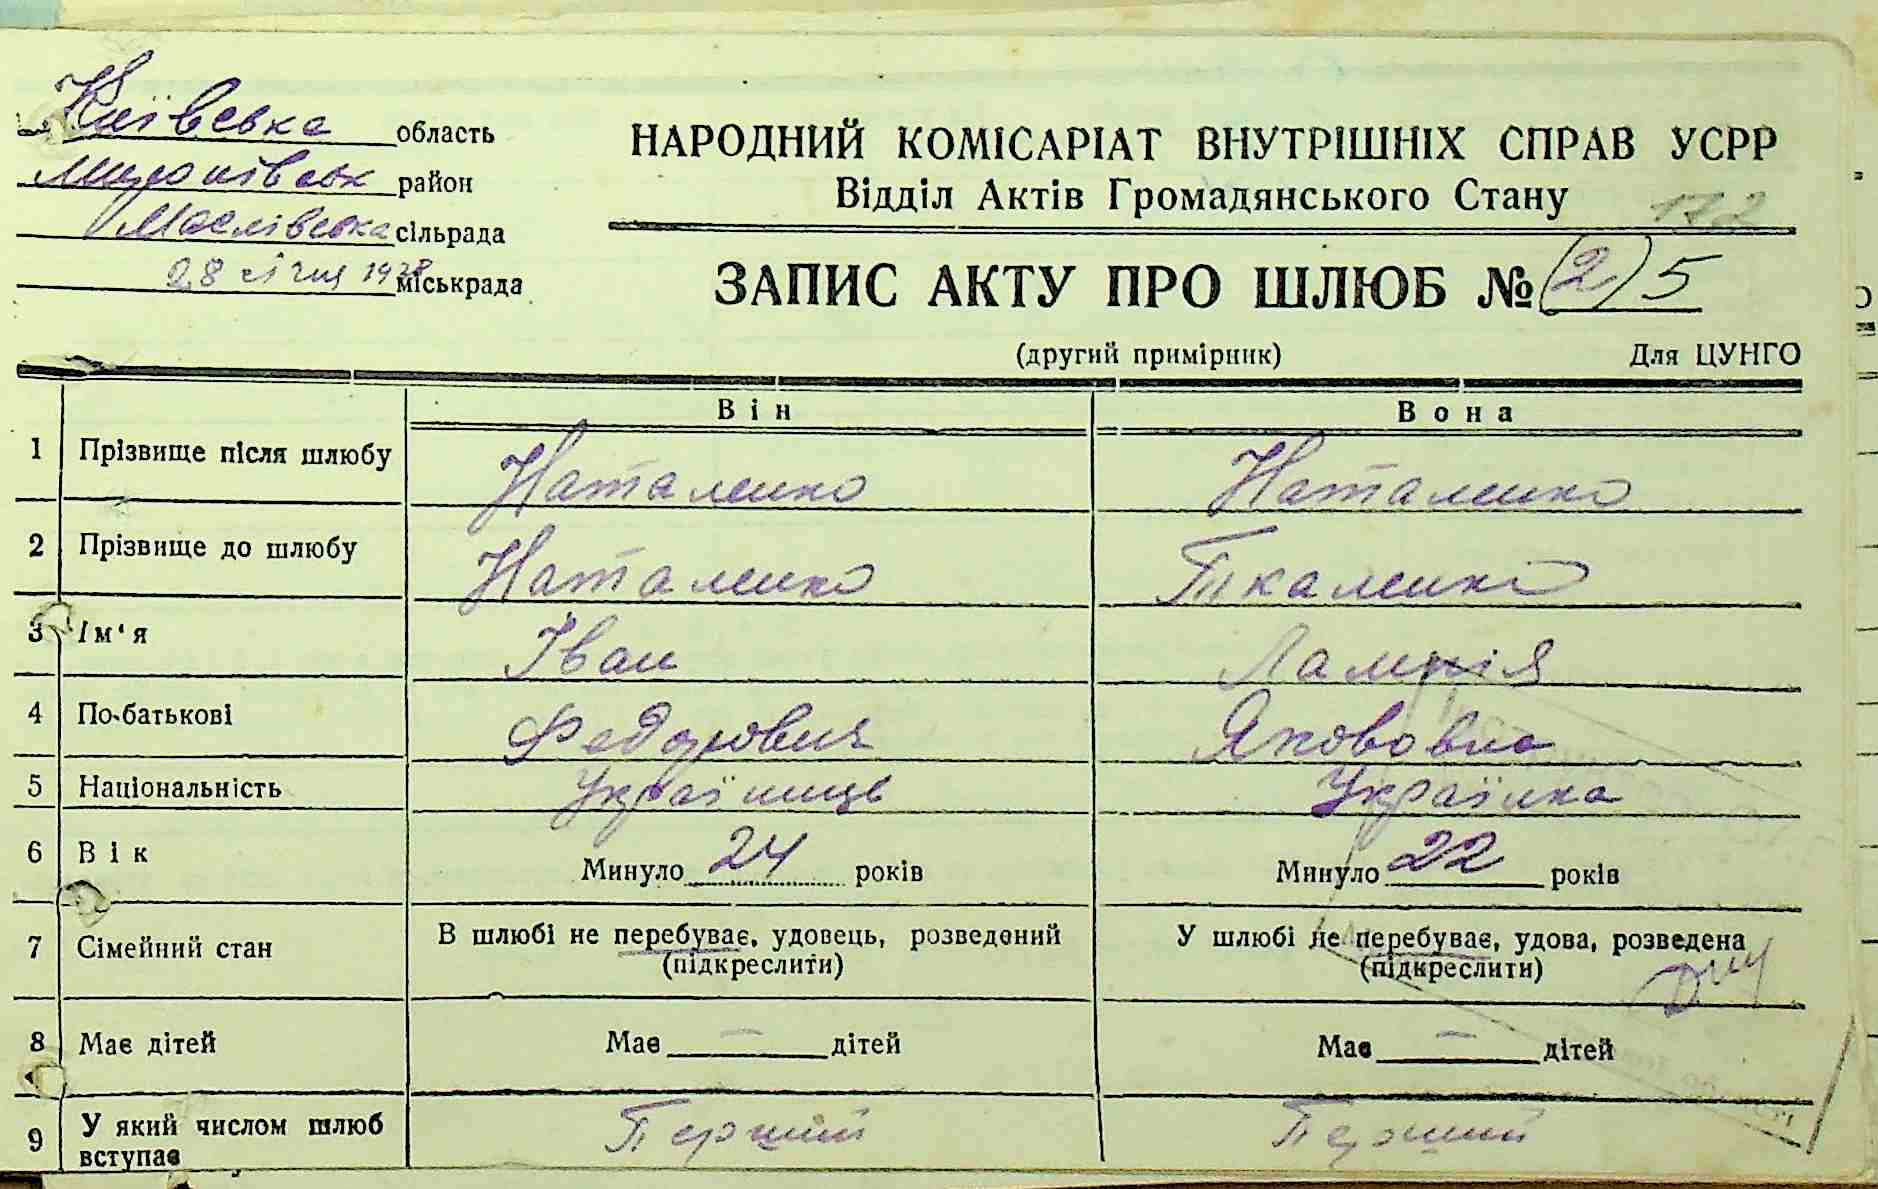 Київська область
Миронівськ район
Маслівська сільрада
28 січня 1938 міськрада
НАРОДНИЙ КОМІСАРІАТ ВНУТРІШНІХ СПРАВ УСРР
Відділ Актів Громадянського Стану
172
ЗАПИС АКТУ ПРО ШЛЮБ № (2) 5
(другий примірник) Для ЦУНГО
Він Вона
1 Прізвище після шлюбу Наталенко Наталенко
2 Прізвище до шлюбу Наталенко Ткаленко
3 Ім'я Іван Лампія
4 По-батькові Федорович Якововна
5 Національність Українець Українка
6 Вік Минуло 24 років Минуло 22 років
7 Сімейний стан В шлюбі не перебуває, удовець, розведений (підкреслити) У шлюбі не перебуває, удова, розведена (підкреслити)
8 Має дітей Має — дітей Має — дітей
9 У який числом шлюб вступає Перший Перший